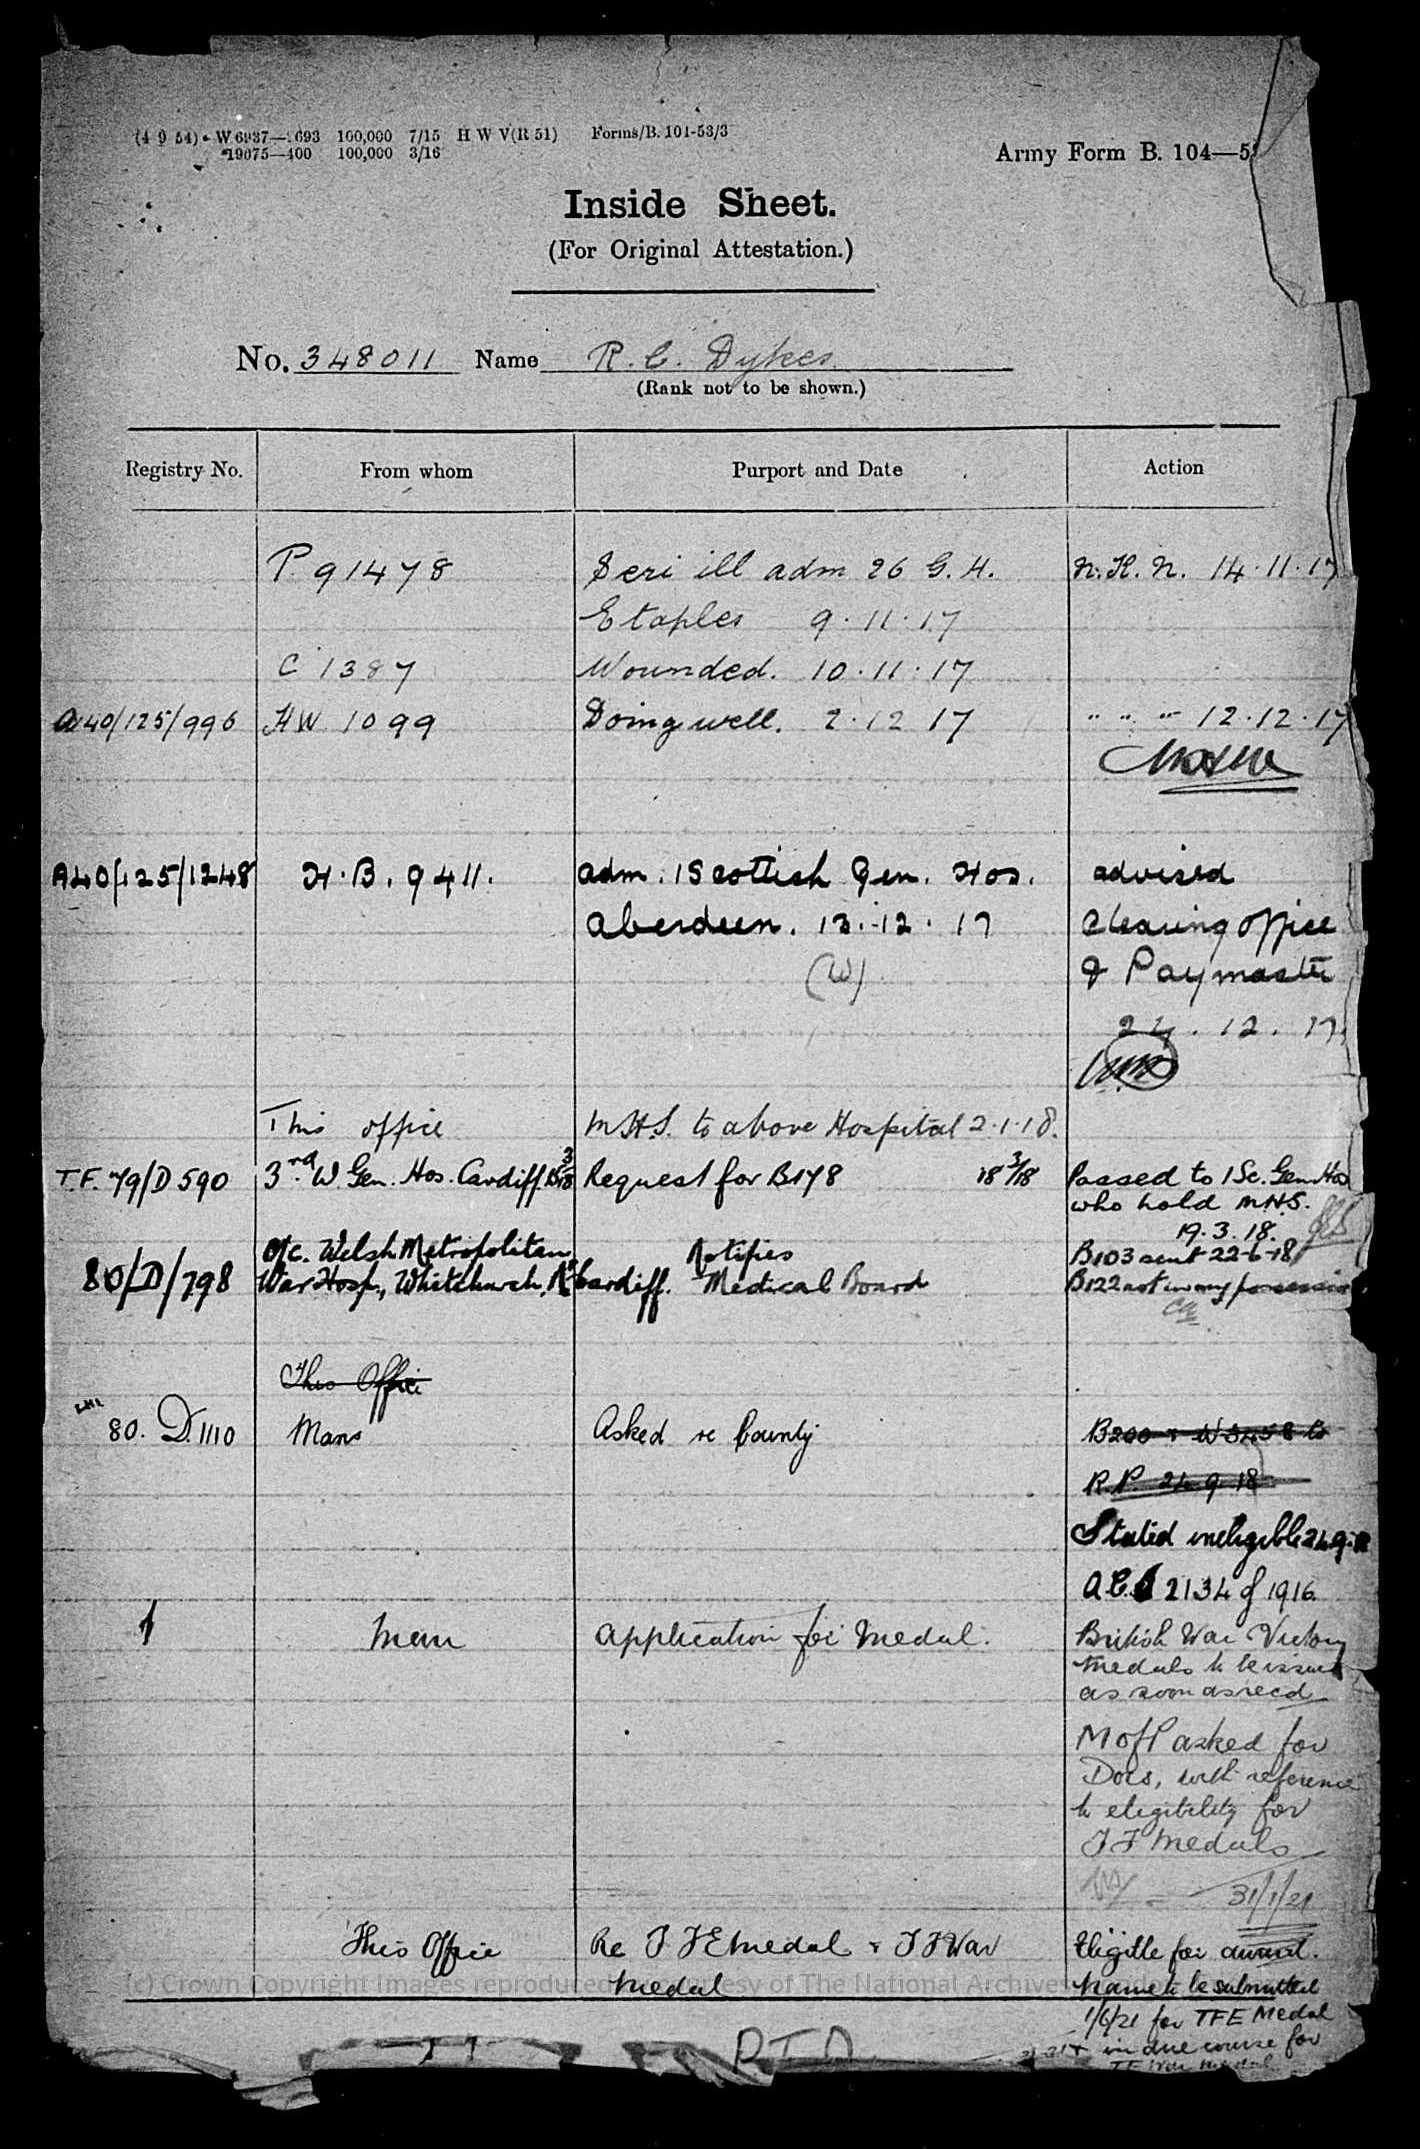 (4 9 54) W 6937—1693 100,000 7/15 H W V(R 51) Forms/B. 101-53/3
19075—400 100,000 3/16
Army Form B. 104—5
Inside Sheet.
(For Original Attestation.)
No. 348011 Name R. C. Dykes
(Rank not to be shown.)
Registry No. From whom Purport and Date Action
P 91478 Seri ill adm 26 G. H. N.K.N. 14.11.17
Etaples 9.11.17
C 1387 Wounded. 10.11.17
A40/125/996 HW 1099 Doing well. 2.12 17 " " " 12.12.17
A40/125/1248 H.B. 9411. adm. 1 Scottish Gen. Hos. advised
Aberdeen. 13.12.17 Clearing office
(W) & Paymaster
24.12.17
This office M.H.S. to above Hospital 2.1.18.
T.F. 79/D 590 3rd W. Gen. Hos. Cardiff 18/3/18 Request for B178 18/3/18 Passed to 1 Sc. Gen Hos
who hold M.H.S.
19.3.18.
80/D/798 O/c. Welsh Metropolitan Notifies B103 sent 22-6-18
War Hosp., Whitchurch, Nr Cardiff. Medical Board B122 not in my possession
This Office
80. D.1110 Mans Asked re Bounty B200 & W3458 to
R.P. 24.9.18
Stated ineligible 24.9.18
A.C.I 2134 of 1916.
Man Application for Medal. British War Victory
medals to be issued
as soon as recd
M of P asked for
Docs, with reference
to eligibility for
T F Medals
31/1/21
This Office Re T F E Medal & T F War Eligible for award.
Medal Name to be submitted
1/6/21 for TFE Medal
& in due course for
TF War Medal
(c) Crown Copyright Images reproduced by courtesy of The National Archives, London
PTO